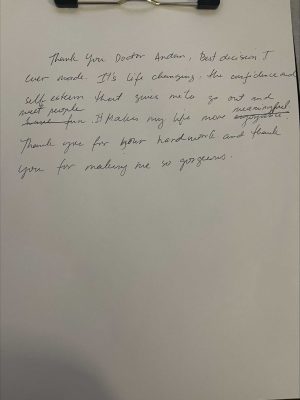 Thank You Doctor Andam, Best decision I
ever made. It's life changing, the confidence and
self esteem that gives me to go out and
meet people meaningful
have fun. It makes my life more enjoyable.
Thank you for your hardwork and thank
you for making me so gorgeous.